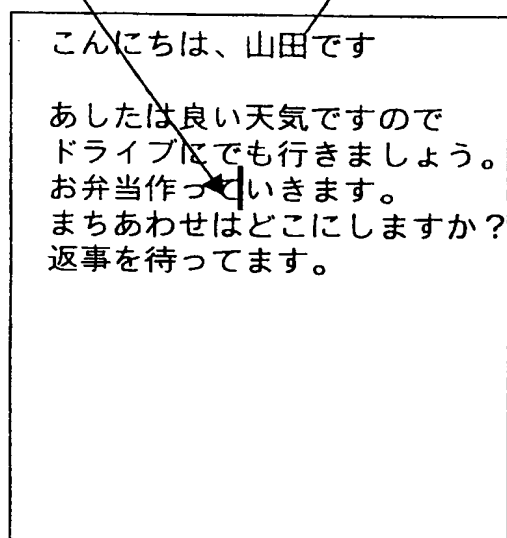 こんにちは、山田です
あしたは良い天気ですので
ドライブにでも行きましょう。
お弁当作っていきます。
まちあわせはどこにしますか?
返事を待ってます。